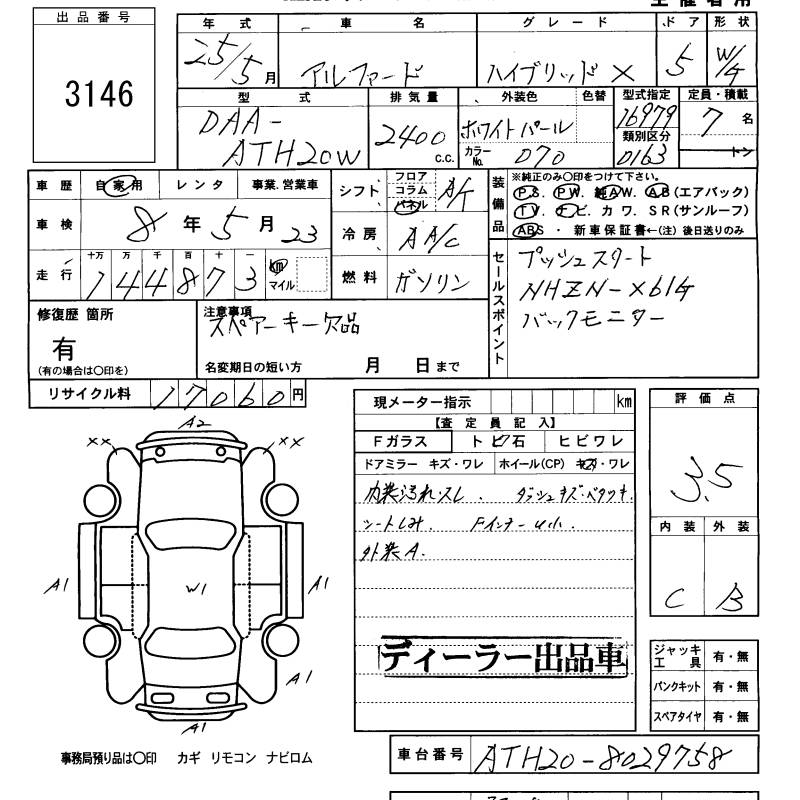 主催者用
出品番号
3146
年式 車名 グレード ドア 形状
25/5月 アルファード ハイブリッド X 5 W/G
型式 排気量 外装色 色替 型式指定 定員・積載
DAA-ATH20W 2400 c.c. ホワイトパール 16979 7名
カラーNo. 070 類別区分 0163 トン
車歴 自家用 レンタ 事業.営業車
シフト フロア コラム パネル A/T
装備品 ※純正のみ〇印をつけて下さい。
PS. PW. 純AW. AB(エアバック)
TV. ナビ. カワ. SR(サンルーフ)
ABS ・ 新車保証書←(注) 後日送りのみ
車検 8年5月23
冷房 AA/C
走行 十万 万 千 百 十 一
144873 km マイル
燃料 ガソリン
セールスポイント
プッシュスタート
NHZN-X61G
バックモニター
修復歴 箇所
有
(有の場合は〇印を)
注意事項
スペアーキー欠品
名変期日の短い方 月 日まで
リサイクル料 17060円
現メーター指示 km
【査定員記入】
Fガラス トビ石 ヒビワレ
ドアミラー キズ・ワレ ホイール(CP) キズ・ワレ
内装汚れスレ. ダッシュキズ・ベタツキ
シートしみ. Fインナー
外装A.
ディーラー出品車
評価点
3.5
内装 外装
C B
A2
×× ××
A1 W1 A1
A1
A1
ジャッキ工具 有・無
パンクキット 有・無
スペアタイヤ 有・無
事務局預り品は〇印 カギ リモコン ナビロム
車台番号 ATH20-8029758